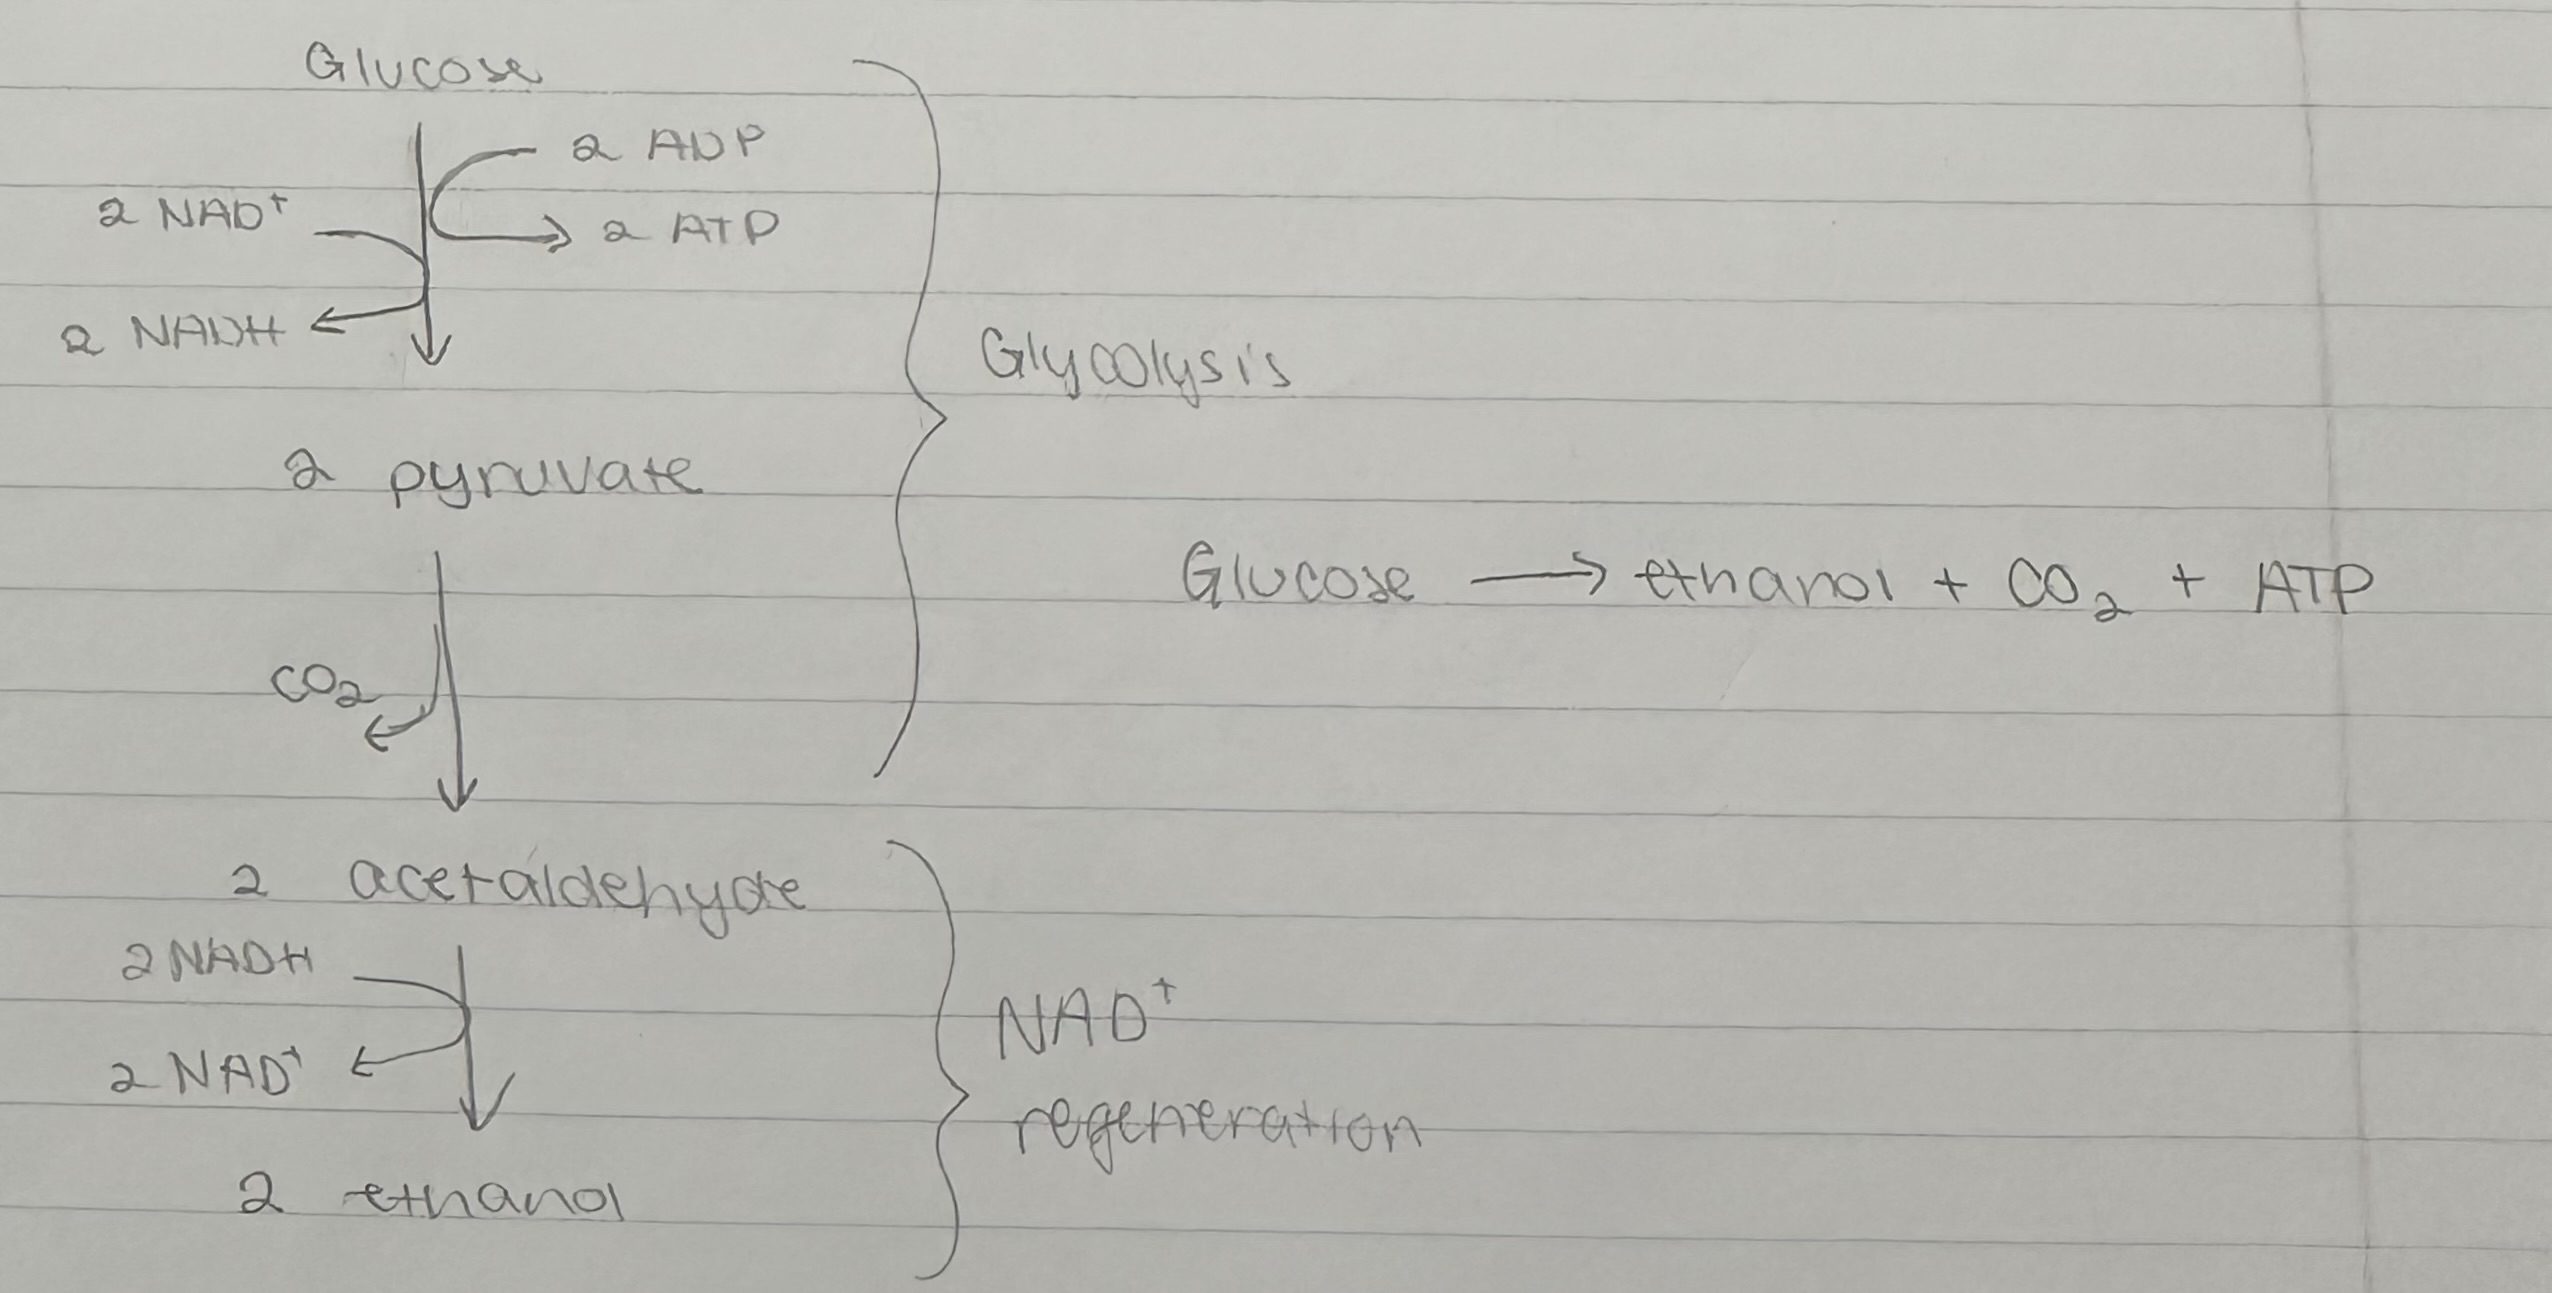 Glucose
2 ADP
2 NAD⁺
2 ATP
2 NADH
Glycolysis
2 pyruvate
Glucose → ethanol + CO₂ + ATP
CO₂
2 acetaldehyde
2 NADH
NAD⁺
2 NAD⁺
regeneration
2 ethanol